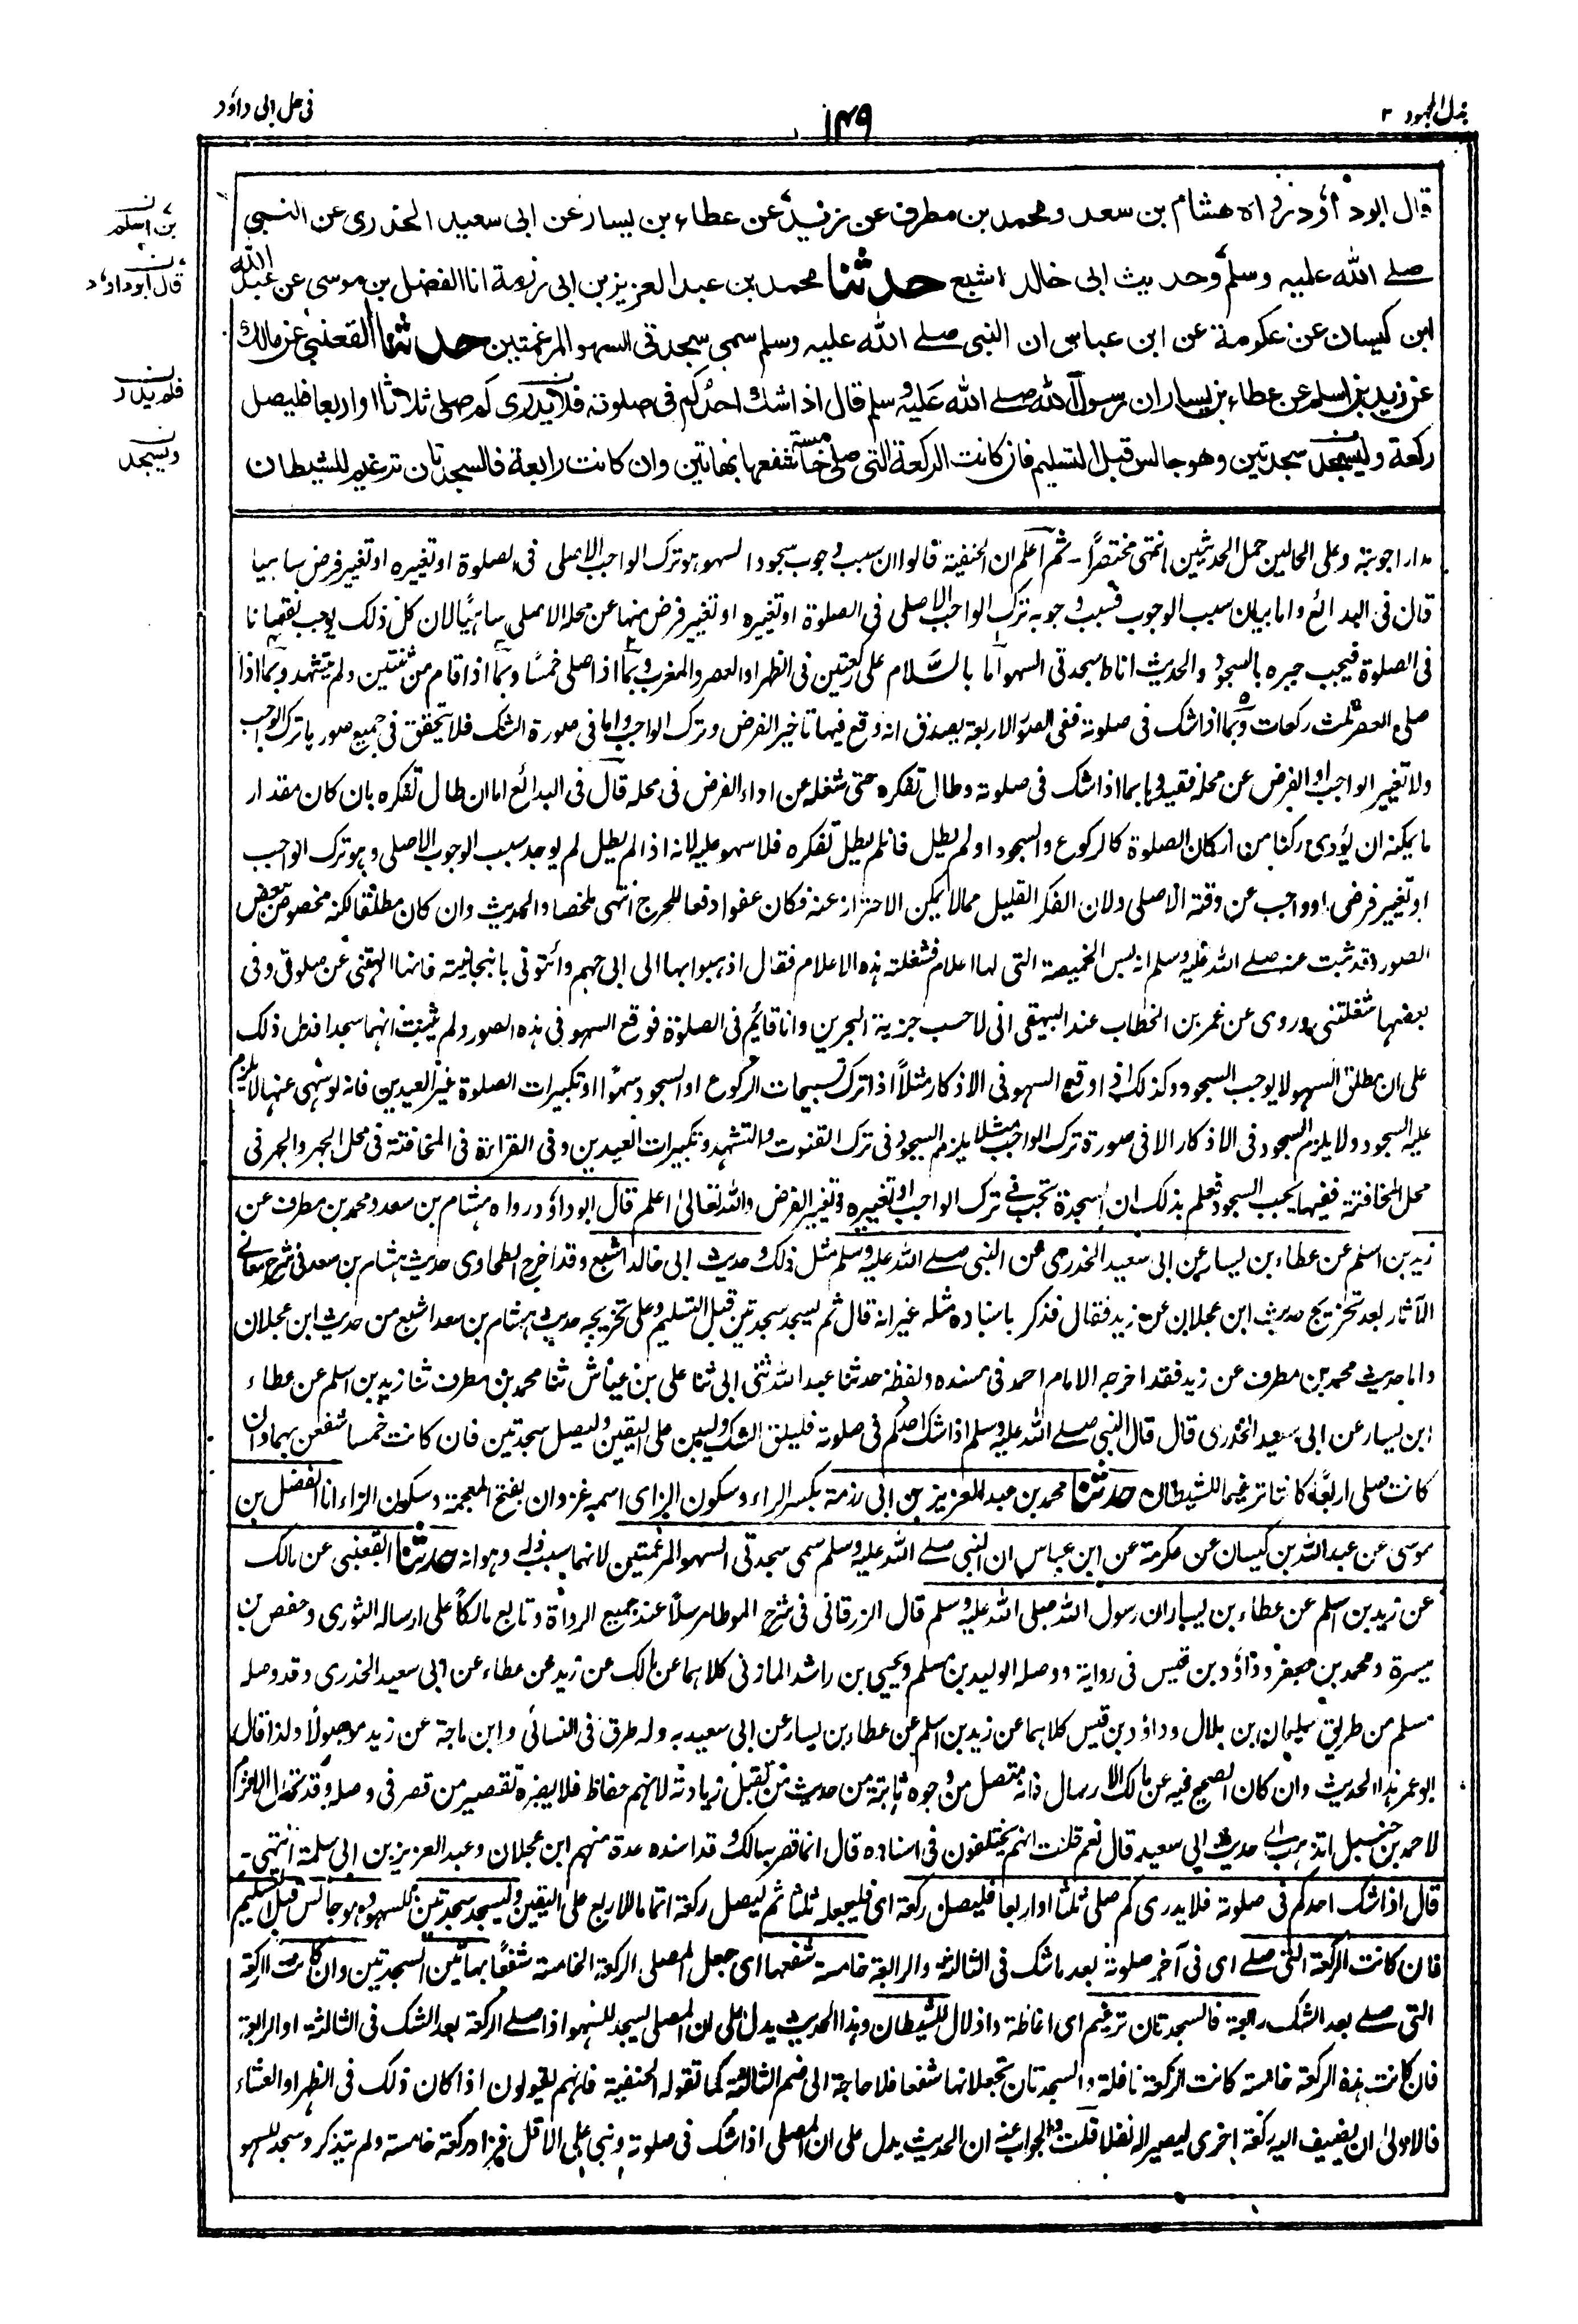 بذل المجهود ۳
۱۴۹
فی حل ابی داؤد
قال ابوداؤد رواه هشام بن سعد ومحمد بن مطرف عن زيد عن عطاء بن يسار عن ابی سعيد الخدری عن النبی
صلے الله عليه وسلم وحديث ابی خالد اشبع حدثنا محمد بن عبد العزيز بن ابی رزمة انا الفضل بن موسی عن عبد الله
ابن كيسان عن عكرمة عن ابن عباس ان النبی صلے الله عليه وسلم سمی سجدتی السهو المرغمتين حدثنا القعنبی عن مالك
عن زيد بن اسلم عن عطاء بن يسار ان رسول الله صلے الله عليه وسلم قال اذا شك احدكم فی صلوته فلا يدری كم صلی ثلاثا او اربعا فليصل
ركعة وليسجد سجدتين وهو جالس قبل التسليم فان كانت الركعة التی صلی خامسة شفعها بهاتين وان كانت رابعة فالسجدتان ترغيم للشيطان
بن اسلم
قال ابوداود
فلم يدر
ويسجد
مدار اجوبته وعلی الحالين حمل الحديثين انتهی مختصرًا ۔ ثم اعلم ان الحنفية قالوا ان سبب وجوب سجود السهو هو ترك الواجب الاصلی فی الصلوة او تغييره او تغيير فرض ساهيا
قال فی البدائع واما بيان سبب الوجوب فسبب وجوبه ترك الواجب الاصلی فی الصلوة او تغييره او تغيير فرض منها عن محله الاصلی ساهيًا لان كل ذلك يوجب نقصانا
فی الصلوة فيجب جبره بالسجود والحديث اناط سجدتی السهو اما بالسلام علی ركعتين فی الظهر او العصر والمغرب وبما اذا صلی خمسًا وبما اذا قام من ثنتين ولم يتشهد وبما اذا
صلی العصر ثلث ركعات وبما اذا شك فی صلوته ففی الصور الاربعة يصدق انه وقع فيها تاخير الفرض وترك الواجب واما فی صورة الشك فلا يتحقق فی جميع صورها ترك الواجب
ولا تغيير الواجب او الفرض عن محله فقيدوها بما اذا شك فی صلوته وطال تفكره حتی شغله عن اداء الفرض فی محله قال فی البدائع اما ان طال تفكره بان كان مقدار
ما يمكنه ان يؤدی ركنا من اركان الصلوة كالركوع والسجود او لم يطل فان لم يطل تفكره فلا سهو عليه لانه اذا لم يطل لم يوجد سبب الوجوب الاصلی وهو ترك الواجب
او تغيير فرض او واجب عن وقته الاصلی ولان الفكر القليل مما لا يمكن الاحتراز عنه فكان عفوا دفعا للحرج انتهی ملخصا والحديث وان كان مطلقا لكنه مخصوص من بعض
الصور وقد ثبت عنه صلے الله عليه وسلم انه لبس الخميصة التی لها اعلام فشغلته هذه الاعلام فقال اذهبوا بها الی ابی جهم وائتونی بانبجانيته فانها الهتنی عن صلوتی وفی
بعضها شغلتنی وروی عن عمر بن الخطاب عند البيهقی انی لاحسب جزية البحرين وانا قائم فی الصلوة فوقع السهو فی هذه الصور ولم يثبت انهما سجدا فدل ذلك
علی ان مطلق السهو لا يوجب السجود وكذلك اذا وقع السهو فی الاذكار مثلاً اذا ترك تسبيحات الركوع او السجود سهوًا او تكبيرات الصلوة غير العيدين فانه لو سهی عنها لا يلزم
عليه السجود ولا يلزم السجود فی الاذكار الا فی صورة ترك الواجب مثلا يلزم السجود فی ترك القنوت والتشهد وتكبيرات العيدين وفی القراءة فی المخافتة فی محل الجهر والجهر فی
محل المخافتة ففيها يجب السجود فعلم بذلك ان السجدة تجب فی ترك الواجب او تغييره وتغيير الفرض والله تعالی اعلم قال ابوداؤد رواه هشام بن سعد ومحمد بن مطرف عن
زيد بن اسلم عن عطاء بن يسار عن ابی سعيد الخدری عن النبی صلے الله عليه وسلم مثل ذلك وحديث ابی خالد اشبع وقد اخرج الطحاوی حديث هشام بن سعد فی شرح معانی
الآثار بعد تخريج حديث ابن عجلان عن زيد فقال فذكر باسناده مثله غير انه قال ثم يسجد سجدتين قبل التسليم وعلی تخريجه حديث هشام بن سعد اشبع من حديث ابن عجلان
واما حديث محمد بن مطرف عن زيد فقد اخرجه الامام احمد فی مسنده ولفظه حدثنا عبد الله ثنی ابی ثنا علی بن عياش ثنا محمد بن مطرف ثنا زيد بن اسلم عن عطاء
ابن يسار عن ابی سعيد الخدری قال قال النبی صلے الله عليه وسلم اذا شك احدكم فی صلوته فليلق الشك وليبن علی اليقين وليصل سجدتين فان كانت خمسا شفعن بهما وان
كانت صلی اربعًا كانتا ترغيما للشيطان حدثنا محمد بن عبد العزيز بن ابی رزمة بكسر الراء وسكون الزای اسمه غزوان بفتح المعجمة وسكون الزاء انا الفضل بن
موسی عن عبد الله بن كيسان عن عكرمة عن ابن عباس ان النبی صلے الله عليه وسلم سمی سجدتی السهو المرغمتين لانهما سبب ذله وهوانه حدثنا القعنبی عن مالك
عن زيد بن اسلم عن عطاء بن يسار ان رسول الله صلی الله عليه وسلم قال الزرقانی فی شرح الموطا مرسلاً عند جميع الرواة وتابع مالكاً علی ارساله الثوری وحفص بن
ميسرة ومحمد بن جعفر وداؤد بن قيس فی رواية ووصله الوليد بن مسلم ويحيی بن راشد المازنی كلاهما عن مالك عن زيد عن عطاء عن ابی سعيد الخدری وقد وصله
مسلم من طريق سليمان بن بلال وداؤد بن قيس كلاهما عن زيد بن اسلم عن عطاء بن يسار عن ابی سعيد به وله طرق فی النسائی وابن ماجة عن زيد موصولًا ولذا قال
ابو عمر هذا الحديث وان كان الصحيح فيه عن مالك الارسال فانه متصل من وجوه ثابتة من حديث من تقبل زيادته لانهم حفاظ فلا يضره تقصير من قصر فی وصله وقد قال الاثرم
لاحمد بن حنبل اتذهب الی حديث ابی سعيد قال نعم قلت انهم يختلفون فی اسناده قال انما قصر به مالك وقد اسنده عدة منهم ابن عجلان وعبد العزيز بن ابی سلمة انتهی ۔
قال اذا شك احدكم فی صلوته فلا يدری كم صلی ثلثا او اربعا فليصل ركعة ای فليجعله ثلثا ثم ليصل ركعة اتماما للاربع علی اليقين وليسجد سجدتين للسهو وهو جالس قبل التسليم
فان كانت الركعة التی صلے ای فی آخر صلوته بعد ما شك فی الثالثة والرابعة خامسة شفعها ای جعل المصلی الركعة الخامسة شفعًا بهاتين السجدتين وان كانت الركعة
التی صلے بعد الشك رابعة فالسجدتان ترغيم ای اغاظة واذلال للشيطان وهذا الحديث يدل علی ان المصلی يسجد للسهو اذا صلے الركعة بعد الشك فی الثالثة او الرابعة
فان كانت هذه الركعة خامسة كانت الركعة نافلة والسجدتان تجعلانها شفعا فلا حاجة الی ضم الثالثة كما تقوله الحنفية فانهم يقولون اذا كان ذلك فی الظهر او العشاء
فالاولی ان يضيف اليه ركعة اخری ليصير له نفلا قلت والجواب عنه ان الحديث يدل علی ان المصلی اذا شك فی صلوته وبنی علی الاقل فزاد ركعة خامسة ولم يتذكر وسجد للسهو